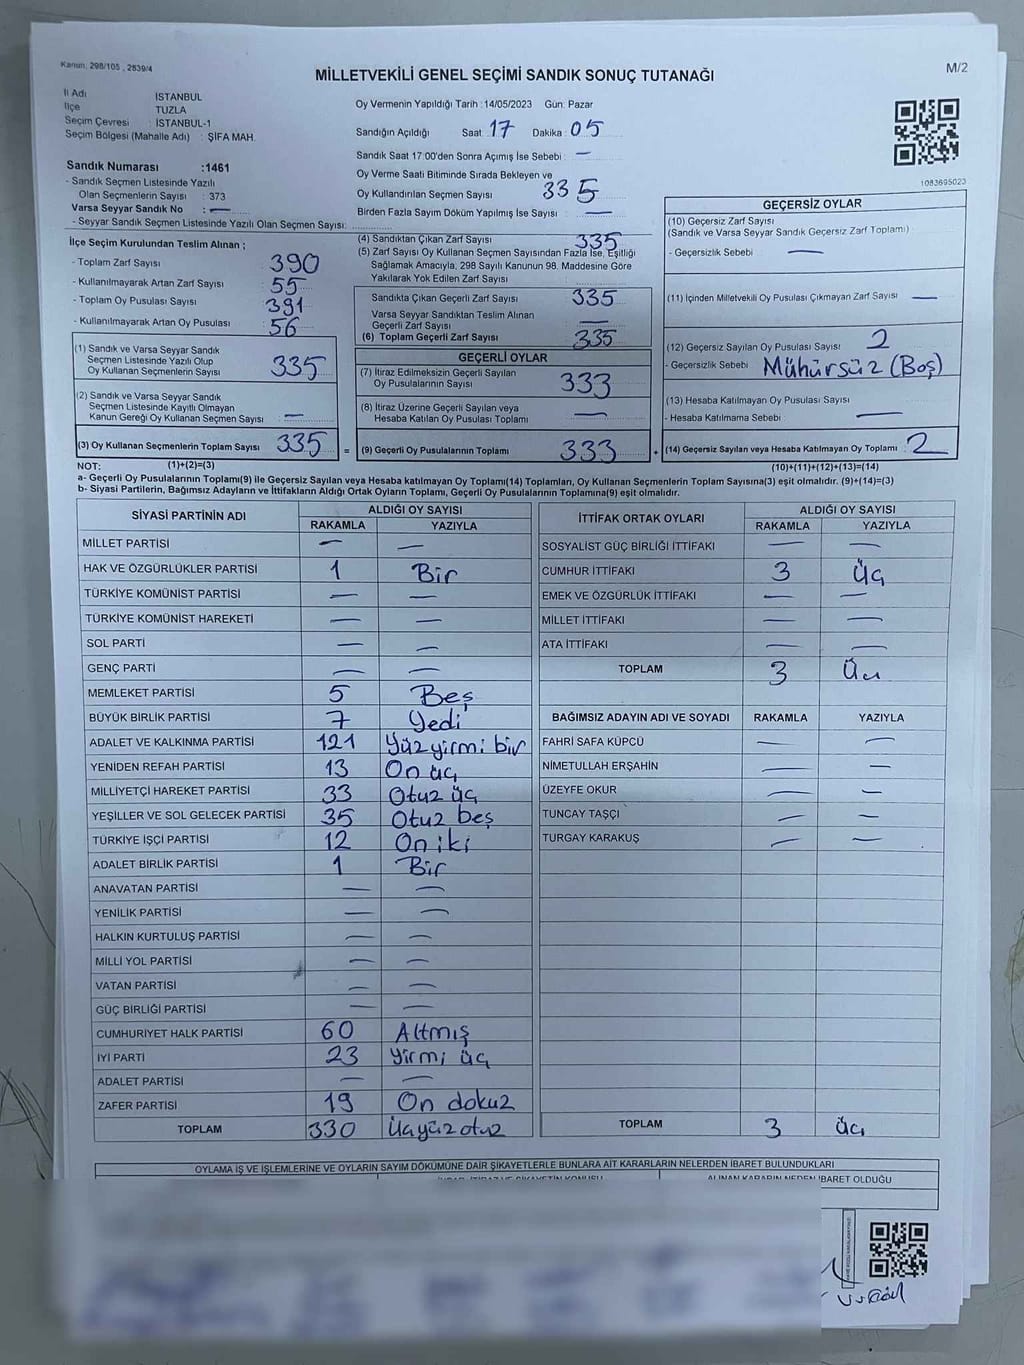 Kanun: 298/105, 2839/4
MİLLETVEKİLİ GENEL SEÇİMİ SANDIK SONUÇ TUTANAĞI
M/2
İl Adı : İSTANBUL
İlçe : TUZLA
Seçim Çevresi : İSTANBUL-1
Seçim Bölgesi (Mahalle Adı) : ŞİFA MAH.
Oy Vermenin Yapıldığı Tarih :14/05/2023 Gün: Pazar
Sandığın Açıldığı Saat: 17 Dakika: 05
Sandık Saat 17:00'den Sonra Açımış İse Sebebi : —
Oy Verme Saati Bitiminde Sırada Bekleyen ve
Oy Kullandırılan Seçmen Sayısı 335
Birden Fazla Sayım Döküm Yapılmış İse Sayısı —
Sandık Numarası :1461
- Sandık Seçmen Listesinde Yazılı
Olan Seçmenlerin Sayısı : 373
Varsa Seyyar Sandık No : —
- Seyyar Sandık Seçmen Listesinde Yazılı Olan Seçmen Sayısı:
1083695023
İlçe Seçim Kurulundan Teslim Alınan ;
- Toplam Zarf Sayısı : 390
- Kullanılmayarak Artan Zarf Sayısı : 55
- Toplam Oy Pusulası Sayısı : 391
- Kullanılmayarak Artan Oy Pusulası : 56
(1) Sandık ve Varsa Seyyar Sandık
Seçmen Listesinde Yazılı Olup
Oy Kullanan Seçmenlerin Sayısı : 335
(2) Sandık ve Varsa Seyyar Sandık
Seçmen Listesinde Kayıtlı Olmayan
Kanun Gereği Oy Kullanan Seçmen Sayısı : —
(3) Oy Kullanan Seçmenlerin Toplam Sayısı : 335 =
(4) Sandıktan Çıkan Zarf Sayısı : 335
(5) Zarf Sayısı Oy Kullanan Seçmen Sayısından Fazla İse, Eşitliği
Sağlamak Amacıyla, 298 Sayılı Kanunun 98. Maddesine Göre
Yakılarak Yok Edilen Zarf Sayısı :
Sandıkta Çıkan Geçerli Zarf Sayısı : 335
Varsa Seyyar Sandıktan Teslim Alınan
Geçerli Zarf Sayısı : —
(6) Toplam Geçerli Zarf Sayısı : 335
GEÇERLİ OYLAR
(7) İtiraz Edilmeksizin Geçerli Sayılan
Oy Pusulalarının Sayısı : 333
(8) İtiraz Üzerine Geçerli Sayılan veya
Hesaba Katılan Oy Pusulası Toplamı : —
(9) Geçerli Oy Pusulalarının Toplamı : 333 +
GEÇERSİZ OYLAR
(10) Geçersiz Zarf Sayısı
(Sandık ve Varsa Seyyar Sandık Geçersiz Zarf Toplamı)
- Geçersizlik Sebebi : —
(11) İçinden Milletvekili Oy Pusulası Çıkmayan Zarf Sayısı : —
(12) Geçersiz Sayılan Oy Pusulası Sayısı : 2
- Geçersizlik Sebebi : Mühürsüz (Boş)
(13) Hesaba Katılmayan Oy Pusulası Sayısı :
- Hesaba Katılmama Sebebi : —
(14) Geçersiz Sayılan veya Hesaba Katılmayan Oy Toplamı : 2
NOT: (1)+(2)=(3) (10)+(11)+(12)+(13)=(14)
a- Geçerli Oy Pusulalarının Toplamı(9) ile Geçersiz Sayılan veya Hesaba katılmayan Oy Toplamı(14) Toplamları, Oy Kullanan Seçmenlerin Toplam Sayısına(3) eşit olmalıdır. (9)+(14)=(3)
b- Siyasi Partilerin, Bağımsız Adayların ve İttifakların Aldığı Ortak Oyların Toplamı, Geçerli Oy Pusulalarının Toplamına(9) eşit olmalıdır.
SİYASİ PARTİNİN ADI ALDIĞI OY SAYISI
RAKAMLA YAZIYLA
MİLLET PARTİSİ — —
HAK VE ÖZGÜRLÜKLER PARTİSİ 1 Bir
TÜRKİYE KOMÜNİST PARTİSİ — —
TÜRKİYE KOMÜNİST HAREKETİ — —
SOL PARTİ — —
GENÇ PARTİ — —
MEMLEKET PARTİSİ 5 Beş
BÜYÜK BİRLİK PARTİSİ 7 Yedi
ADALET VE KALKINMA PARTİSİ 121 Yüz yirmi bir
YENİDEN REFAH PARTİSİ 13 On üç
MİLLİYETÇİ HAREKET PARTİSİ 33 Otuz üç
YEŞİLLER VE SOL GELECEK PARTİSİ 35 Otuz beş
TÜRKİYE İŞÇİ PARTİSİ 12 On iki
ADALET BİRLİK PARTİSİ 1 Bir
ANAVATAN PARTİSİ — —
YENİLİK PARTİSİ — —
HALKIN KURTULUŞ PARTİSİ — —
MİLLİ YOL PARTİSİ — —
VATAN PARTİSİ — —
GÜÇ BİRLİĞİ PARTİSİ — —
CUMHURİYET HALK PARTİSİ 60 Altmış
İYİ PARTİ 23 Yirmi üç
ADALET PARTİSİ — —
ZAFER PARTİSİ 19 On dokuz
TOPLAM 330 Üçyüz otuz
İTTİFAK ORTAK OYLARI ALDIĞI OY SAYISI
RAKAMLA YAZIYLA
SOSYALİST GÜÇ BİRLİĞİ İTTİFAKI — —
CUMHUR İTTİFAKI 3 Üç
EMEK VE ÖZGÜRLÜK İTTİFAKI — —
MİLLET İTTİFAKI — —
ATA İTTİFAKI — —
TOPLAM 3 Üç
BAĞIMSIZ ADAYIN ADI VE SOYADI RAKAMLA YAZIYLA
FAHRİ SAFA KÜPCÜ — —
NİMETULLAH ERŞAHİN — —
ÜZEYFE OKUR — —
TUNCAY TAŞÇI — —
TURGAY KARAKUŞ — —
TOPLAM 3 Üç
OYLAMA İŞ VE İŞLEMLERİNE VE OYLARIN SAYIM DÖKÜMÜNE DAİR ŞİKAYETLERLE BUNLARA AİT KARARLARIN NELERDEN İBARET BULUNDUKLARI
ALINAN KARARIN NEDEN İBARET OLDUĞU